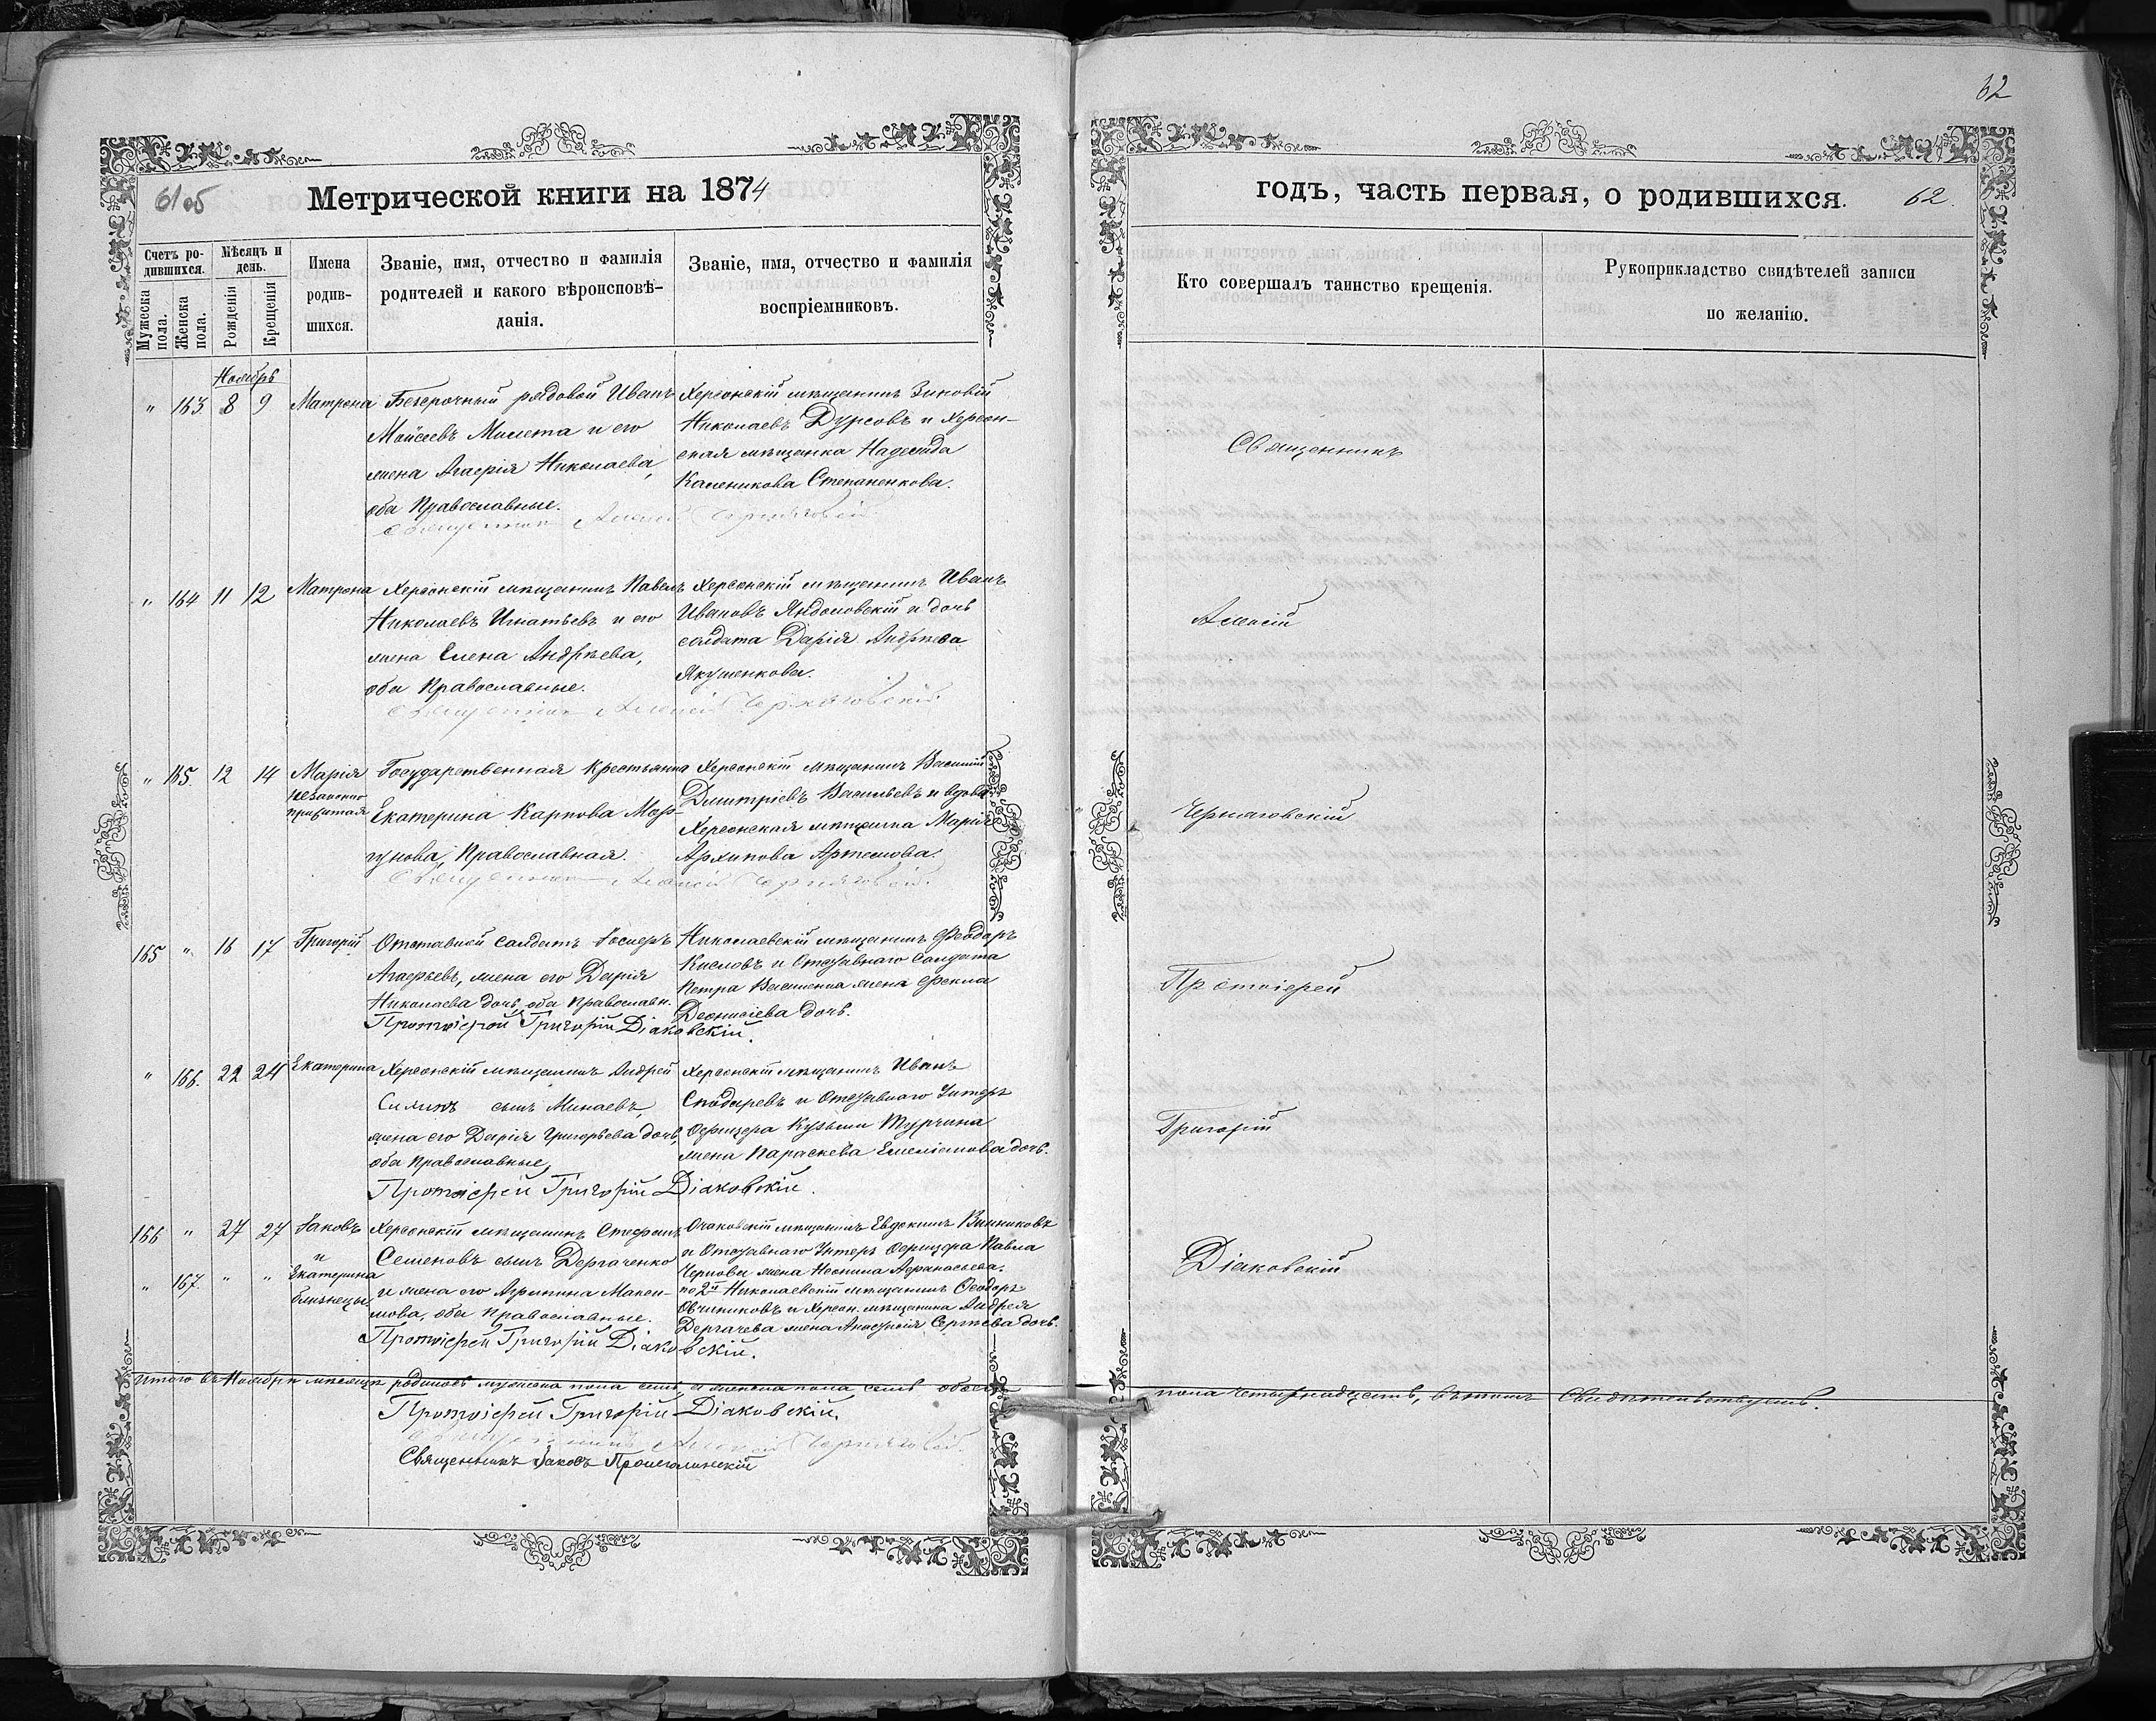 62
61об
Метрической книги на 1874
Счетъ ро-
дившихся.
Мѣсяцъ и
день.
Мужеска
пола.
Женска
пола.
Рожденія
Крещенія
Имена
родив-
шихся.
Званіе, имя, отчество и фамилія
родителей и какого вѣроисповѣ-
данія.
Званіе, имя, отчество и фамилія
воспріемниковъ.
Ноябрь
" 163 8 9 Матрона
Безсрочный рядовой Иванъ
Мойсеевъ и его
жена Николаева,
оба Православные.
Херсонскій мѣщанинъ Зиновій
Николаевъ Дурсовъ и Херсон-
ская мѣщанка Надежда
Каленикова Степаненкова.
Священникъ Алексій
" 164 11 12 Матрона
Херсонскій мѣщанинъ Павелъ
Николаевъ Игнатьевъ и его
жена Елена Андрѣева,
оба Православные.
Херсонскій мѣщанинъ Иванъ
Ивановъ и дочь
солдата Дарія Андрѣева
Якушенкова.
Священникъ Алексій
" 165. 12 14 Марія
незаконно
прижитая
Государственная Крестьянка
Екатерина Карпова Мор-
гунова, Православная.
Херсонскій мѣщанинъ Василій
Дмитріевъ Васильевъ и вдова
Херсонская мѣщанка Марія
Архипова Артемова.
Священникъ Алексій
165 " 16 17 Григорій
Отставной Солдатъ Іосифъ
Агафьевъ, жена его Дарія
Николаева дочь, оба Православн.
Николаевскій мѣщанинъ Ѳеодоръ
Кисловъ и Отставнаго Солдата
Петра жена Фекла
Деонисіева дочь.
Протоіерей Григорій Діаковскій.
" 166. 22 24 Екатерина
Херсонскій мѣщанинъ Андрей
сынъ Минаевъ,
жена его Дарія Григорьева дочь,
оба Православные,
Херсонскій мѣщанинъ Иванъ
Сподыревъ и Отставнаго Унтеръ
Офицера Кузьмы Турчина
жена Параскева Емеліанова дочь.
Протоіерей Григорій Діаковскій.
166 " 27 27 Іаковъ
и
" 167. " " Екатерина
близнецы.
Херсонскій мѣщанинъ Стефанъ
Семеновъ сынъ Дергаченко
и жена его Агрипина Макси-
мова, оба Православные.
Очаковскій мѣщанинъ Евдокимъ Винниковъ
и Отставнаго Унтеръ Офицера Павла
Чернова жена Неонила Афанасьева.
по 2й Николаевскій мѣщанинъ Ѳеодоръ
Овчиниковъ и Херсон. мѣщанина Андрея
Дергачева жена Анастасія Сергѣева дочь.
Протоіерей Григорій Діаковскій.
Итого въ Ноябрѣ мѣсяцѣ родилось мужеска пола семь, а женска пола семь обоего
Протоіерей Григорій Діаковскій.
Священникъ Алексій
Священникъ Іаковъ
годъ, часть первая, о родившихся.
62.
Кто совершалъ таинство крещенія.
Рукоприкладство свидѣтелей записи
по желанію.
Священникъ
Алексій
Протоіерей
Григорій
Діаковскій
пола четырнадцать, въ томъ Свидѣтельствуемъ.